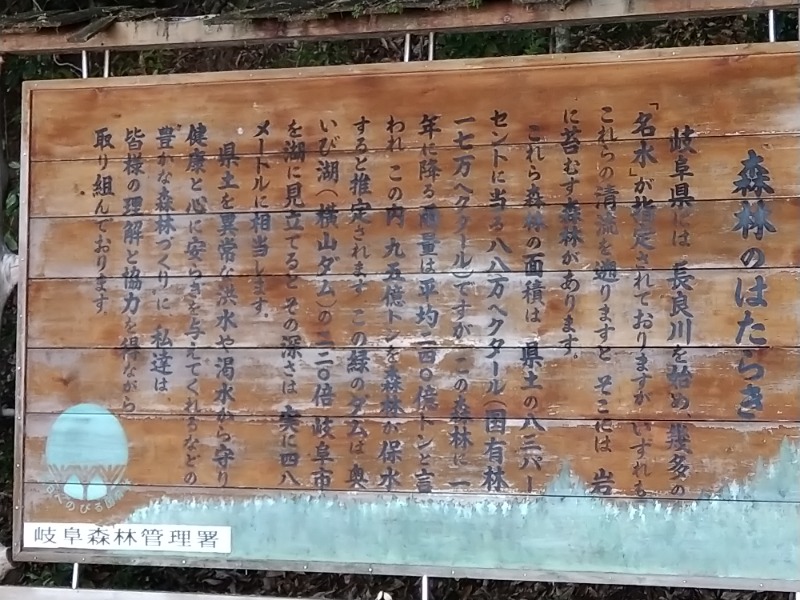 森林のはたらき
岐阜県には 長良川を始め、幾多の
「名水」が指定されておりますが いずれも
これらの清流を遡りますと そこには 岩
に苔むす森林があります。
これら森林の面積は 県土の八三パー
セントに当る八八万ヘクタール(国有林
一七万ヘクタール)ですが この森林に 一
年に降る雨量は平均二四〇億トンと言
われ この内 九五億トンを森林が保水
すると推定されます この緑のダムは 奥
いび湖(横山ダム)の 二二〇倍 岐阜市
を湖に見立てると その深さは 実に四八
メートルに相当します。
県土を異常な洪水や渇水から守り
健康と心に安らぎを与えてくれるなどの
豊かな森林づくりに 私達は
皆様の理解と協力を得ながら
取り組んでおります。
のびる国有林
岐阜森林管理署